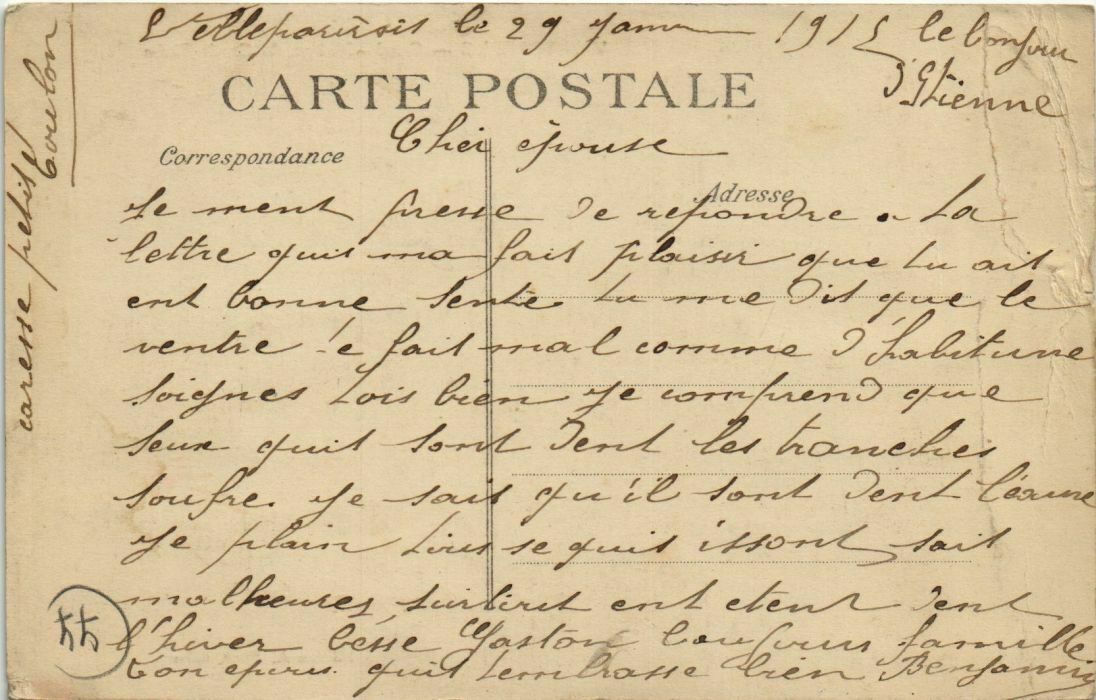 Velleparisis le 29 Janv 1915 le bonjour
d'Etienne
CARTE POSTALE
Cher épouse
Correspondance
Adresse
Je ment presse de repondre. La
lettre quit ma fait plaisir que tu ait
ent bonne sente. tu me dit que le
ventre te fait mal comme d'habitune
soignes tois bien Je comprend que
seux quit sont dent les tranches
soufre. Je sais qu'il sont dent l'éaune
Je plain tous se quit issont sait
malheures surtout ent etent dent
l'hiver bésse Gaston bonjours famille
ton epous quit tembrasse bien Benjamin
caresse petit
toulon
44